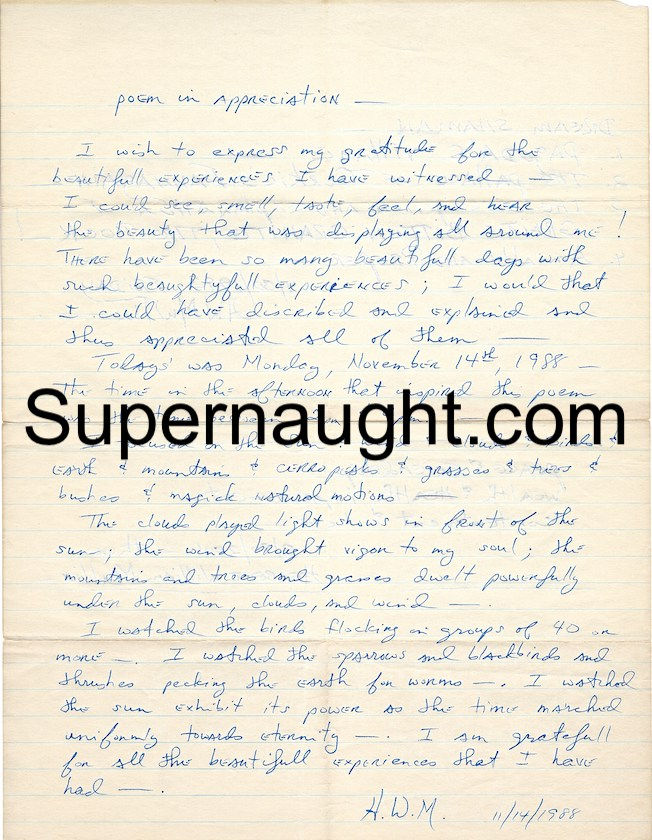 poem in Appreciation —
I wish to express my gratitude for the
beautifull experiences I have witnessed —
I could see, smell, taste, feel, and hear
the beauty that was displaying all around me!
There have been so many beautifull days with
such beaughtyfull experiences; I would that
I could have discribed and explained and
thus appreciated all of them —
Todays' was Monday, November 14th, 1988 —
The time in the afternoon that inspired this poem
Supernaught.com
earth & mountains & cerro peaks & grasses & trees &
bushes & magick natural motions
The clouds played light shows in front of the
sun—; the wind brought vigor to my soul; the
mountains and trees and grasses dwelt powerfully
under the sun, clouds, and wind —.
I watched the birds flocking in groups of 40 or
more —. I watched the sparrows and blackbirds and
thrushes pecking the earth for worms —. I watched
the sun exhibit its power as the time marched
uniformly towards eternity —. I am gratefull
for all the beautifull experiences that I have
had —.
H.W.M. 11/14/1988